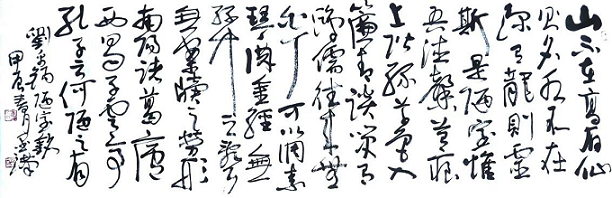 山不在高有仙
則名水不在
深有龍則靈
斯是陋室惟
吾德馨苔痕
上階綠草色入
簾青談笑有
鴻儒往來無
白丁可以調素
琴閱金經無
絲竹之亂耳
無案牘之勞形
南陽諸葛廬
西蜀子雲亭
孔子云何陋之有
劉禹錫陋室銘
甲辰春月